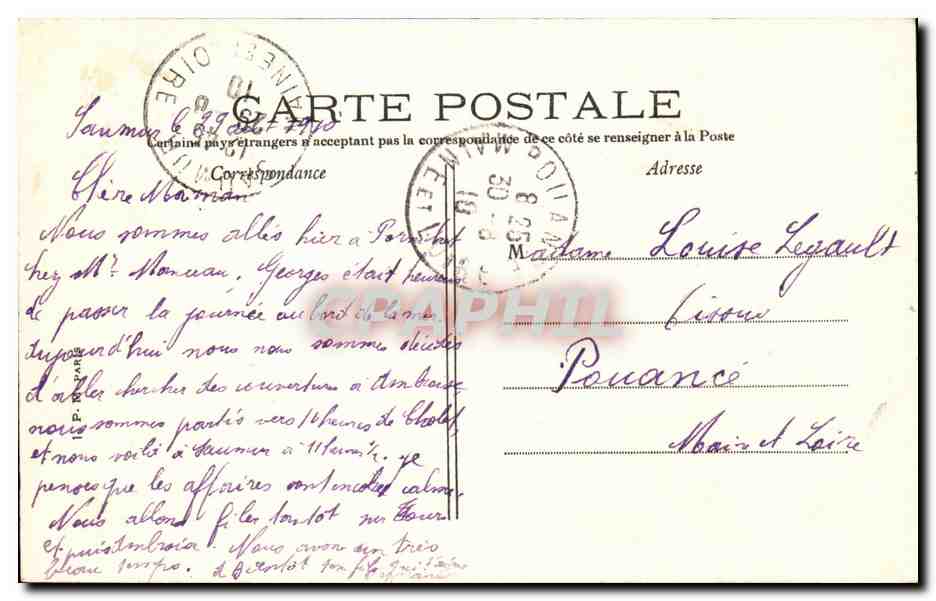 CARTE POSTALE
Certains pays étrangers n'acceptant pas la correspondance de ce côté se renseigner à la Poste
Correspondance
Adresse
Saumur le 29 août 1910
Chère Maman
Nous sommes allés hier à Pornichet
chez Mr Monceau. Georges était heureux
de passer la journée au bord de la mer.
aujourd'hui nous nous sommes décidés
d'aller chercher des couvertures à Amboise
nous sommes partis vers 10 heures de Cholet,
et nous voilà à Saumur à 11 heures ½. je
penses que les affaires sont calme.
Nous allons filer tantôt sur Tours
et puis Amboise. Nous avons un très
beau temps. à Bientôt ton fils
Madame Louise Legault
Pouancé
Main et Loire
POUANCÉ
MAINE ET LOIRE
8 25
30 -8
10
MAINE ET LOIRE
CPAPHIL
PARIS